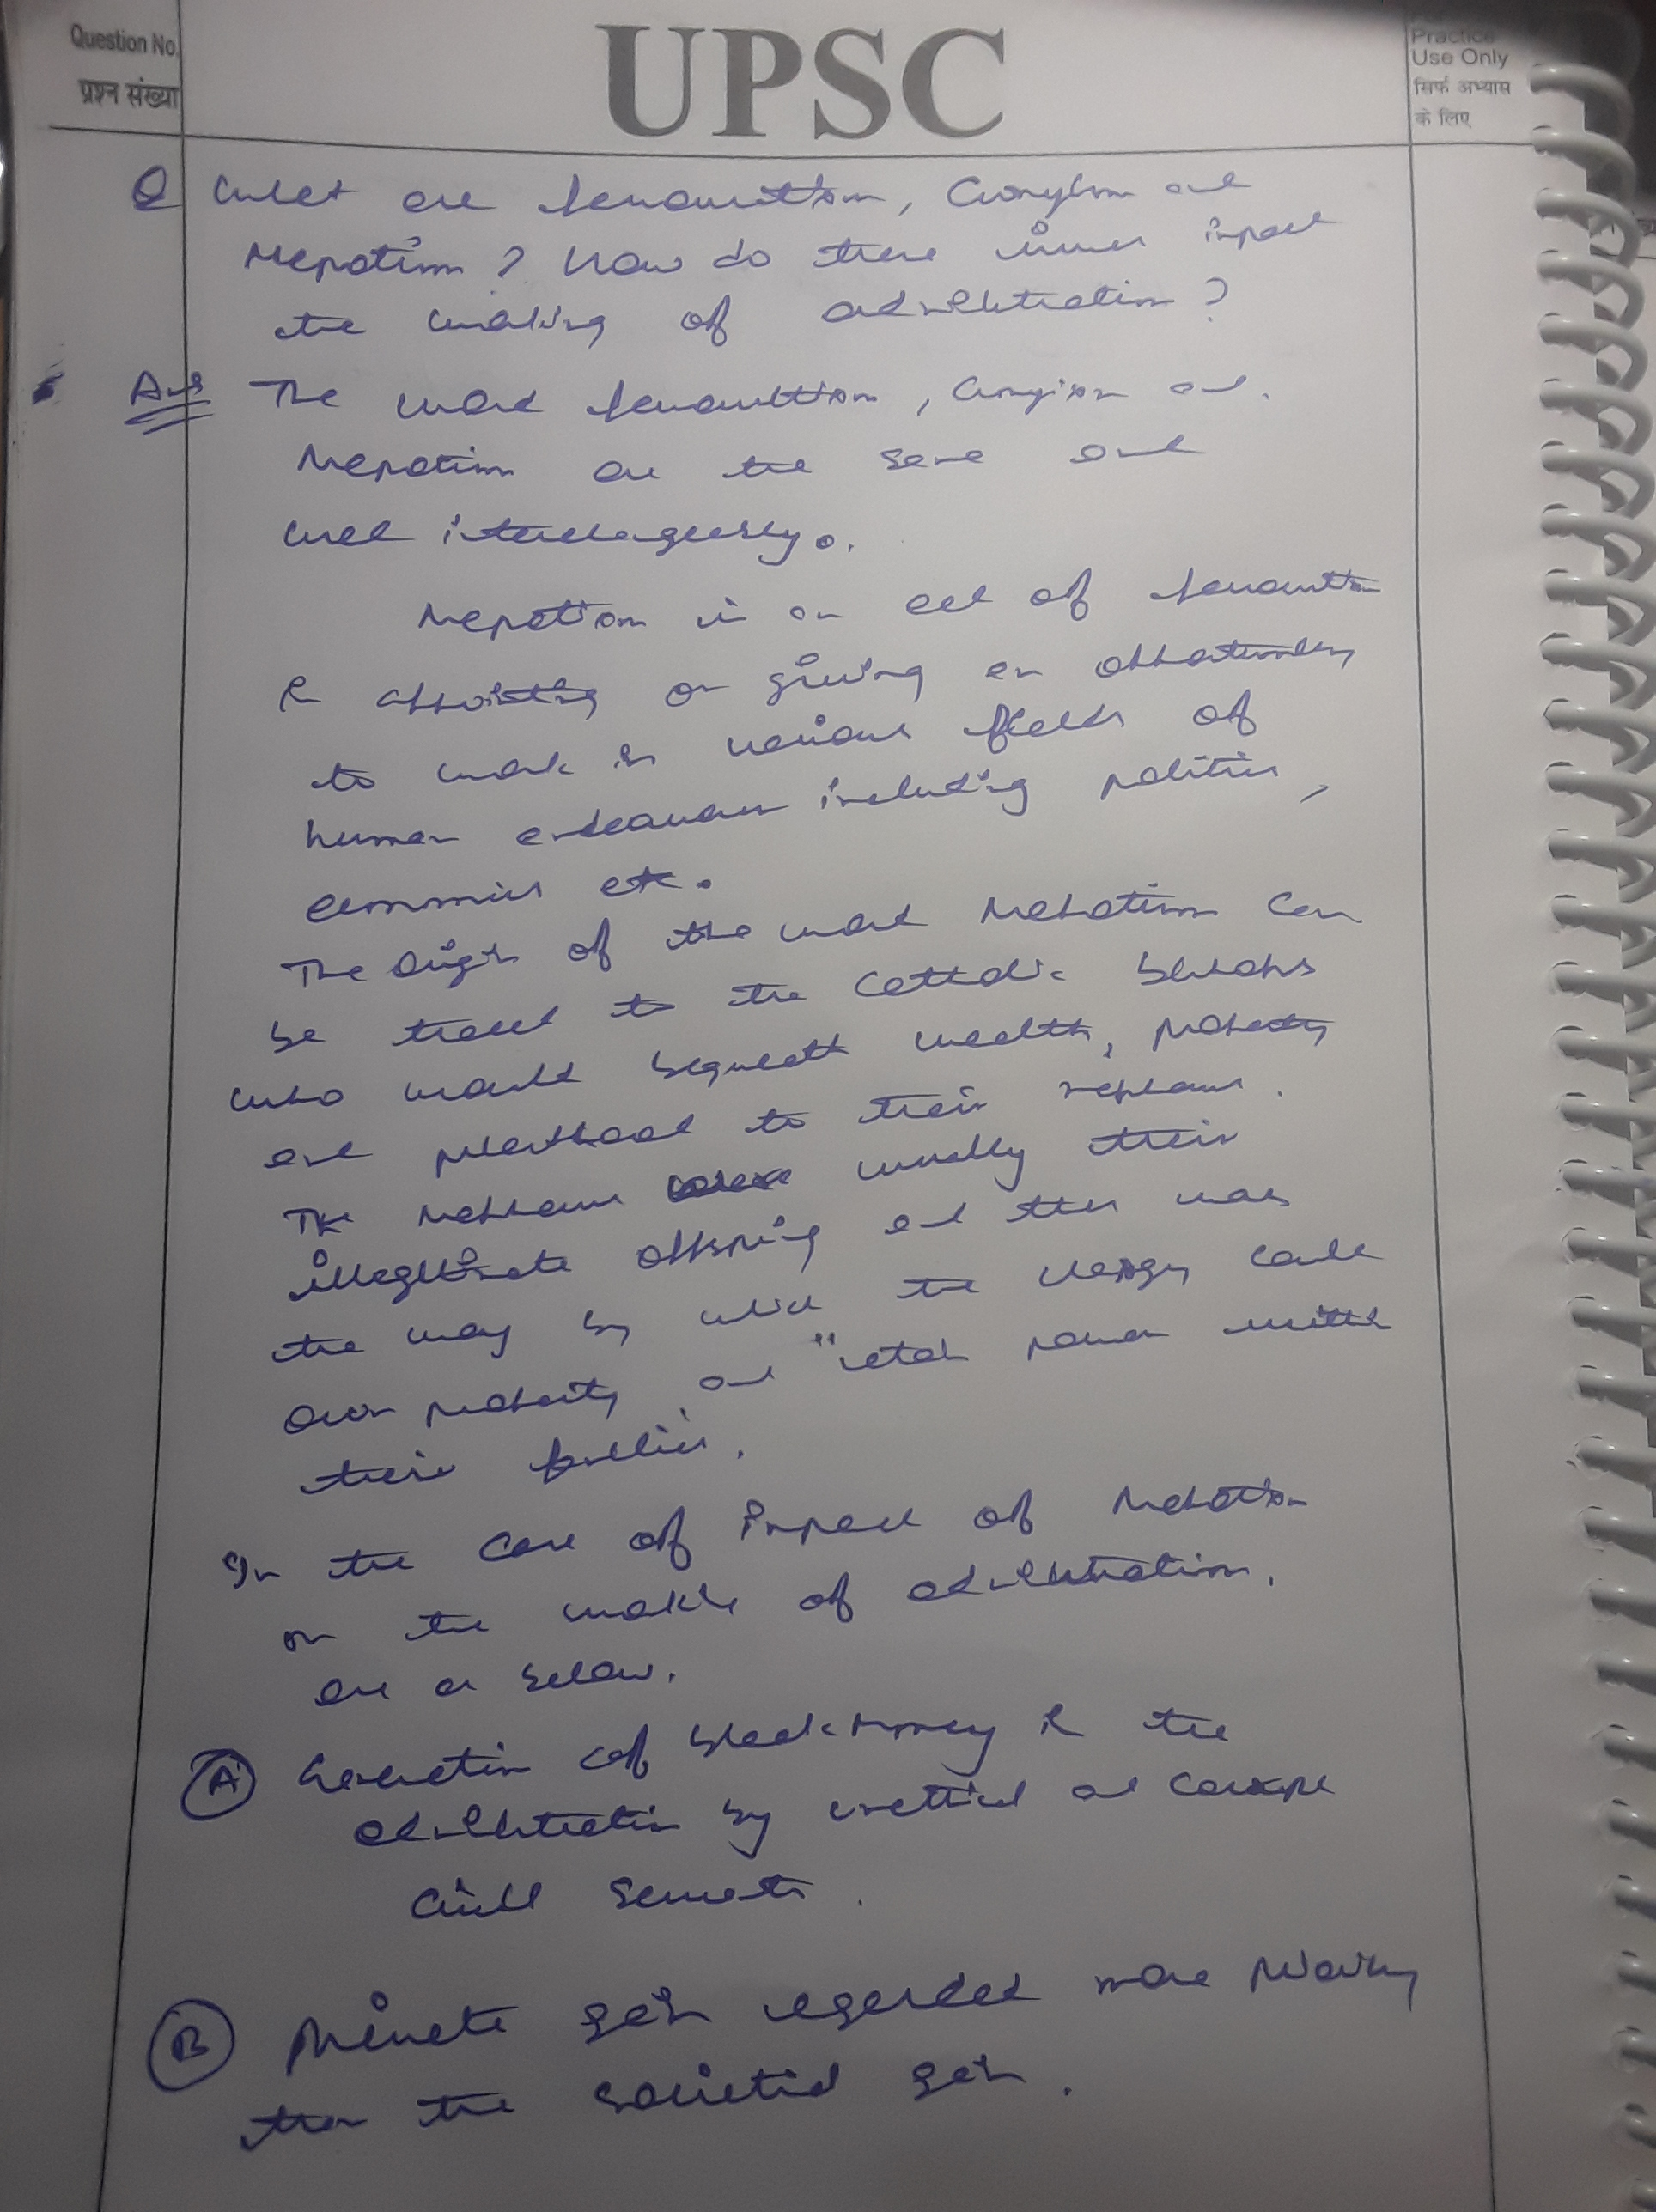 Question No.
प्रश्न संख्या
UPSC
Practice
Use Only
सिर्फ अभ्यास
के लिए
Q What are favouritism, Cronyism and
Nepotism? How do these issues impact
the working of administration?
Ans The word favouritism, Cronyism and
Nepotism are the same and
used interchangeably.
Nepotism is an act of favouritism
in appointing or giving an opportunity
to work in various fields of
human endeavour including politics,
economics etc.
The origin of the word Nepotism can
be traced to the Catholic bishops
who would bequeath wealth, property
and priesthood to their nephews.
The nephews usually their
illegitimate offspring and this was
the way by which the clergy could
own property and retain power with
their families.
In the case of impact of Nepotism
on the working of administration.
are as below.
(A) Generation of black money in the
administration by unethical and corrupt
Civil Servants.
(B) Private gain regarded more priority
than the societal gain.